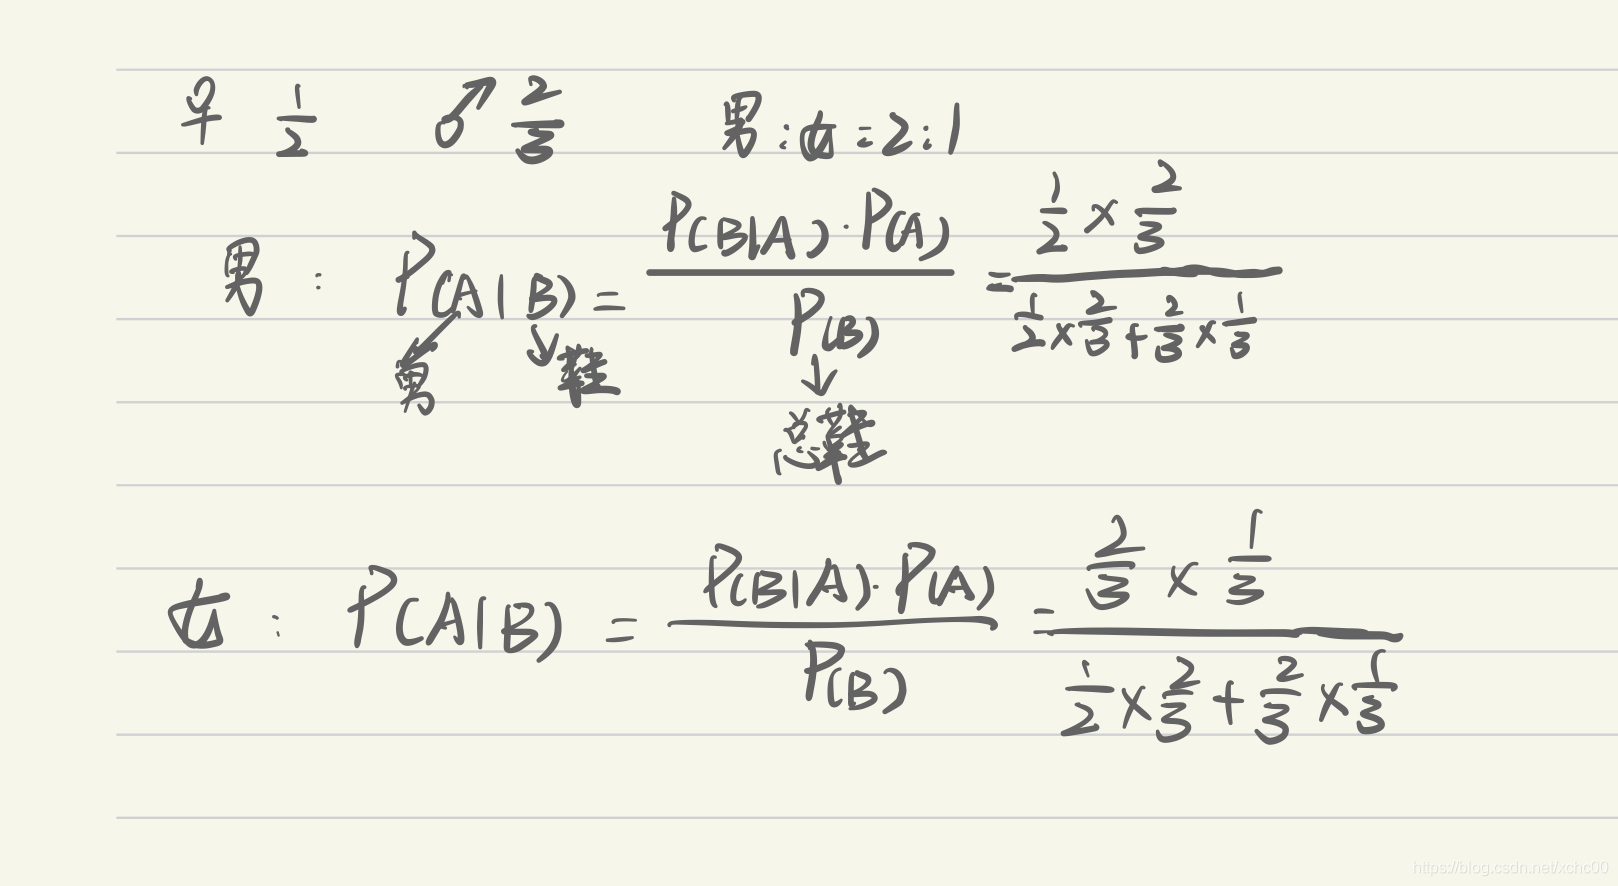 ♀ 1/2 ♂ 2/3 男:女=2:1
男: P(A|B) = P(B|A)·P(A) / P(B) = (1/2 × 2/3) / (1/2 × 2/3 + 2/3 × 1/3)
男 鞋
总鞋
女: P(A|B) = P(B|A)·P(A) / P(B) = (2/3 × 1/3) / (1/2 × 2/3 + 2/3 × 1/3)
https://blog.csdn.net/xchc00